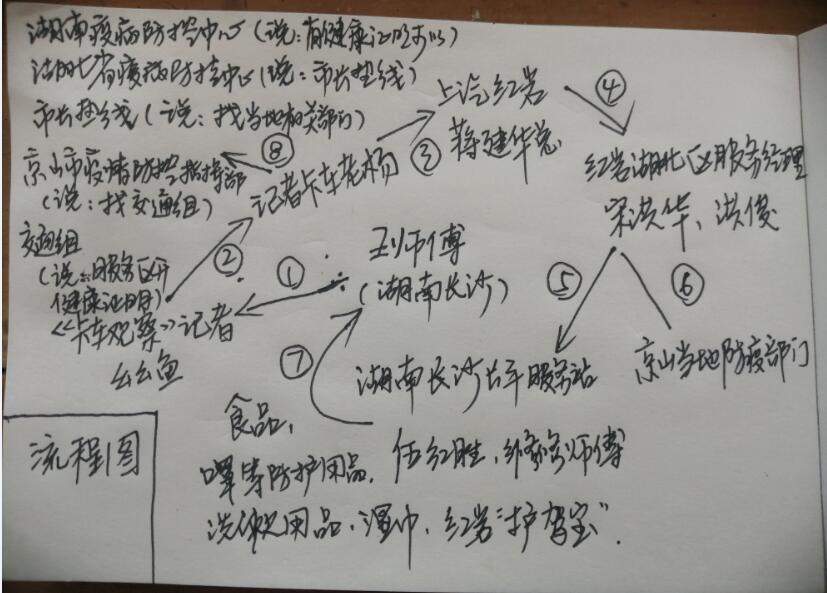 湖南疫病防控中心(说:有健康证明可以)
湖北省疫病防控中心(说:市长热线)
市长热线(说:找当地相关部门)
京山市疫情防控指挥部
(说:找交通组)
交通组
(说:服务区开
健康证明)
《卡车观察》记者
么么鱼
②
①
⑧
记者卡车老杨
③
上汽红岩
蒋建华总
④
红岩湖北区服务经理
宋洪华、洪俊
⑤
⑥
京山当地防疫部门
王师傅
(湖南长沙)
湖南长沙大车服务站
⑦
任红胜,维修师傅
食品、
口罩等防护用品、
洗漱用品、湿巾、红岩"护驾宝".
流程图